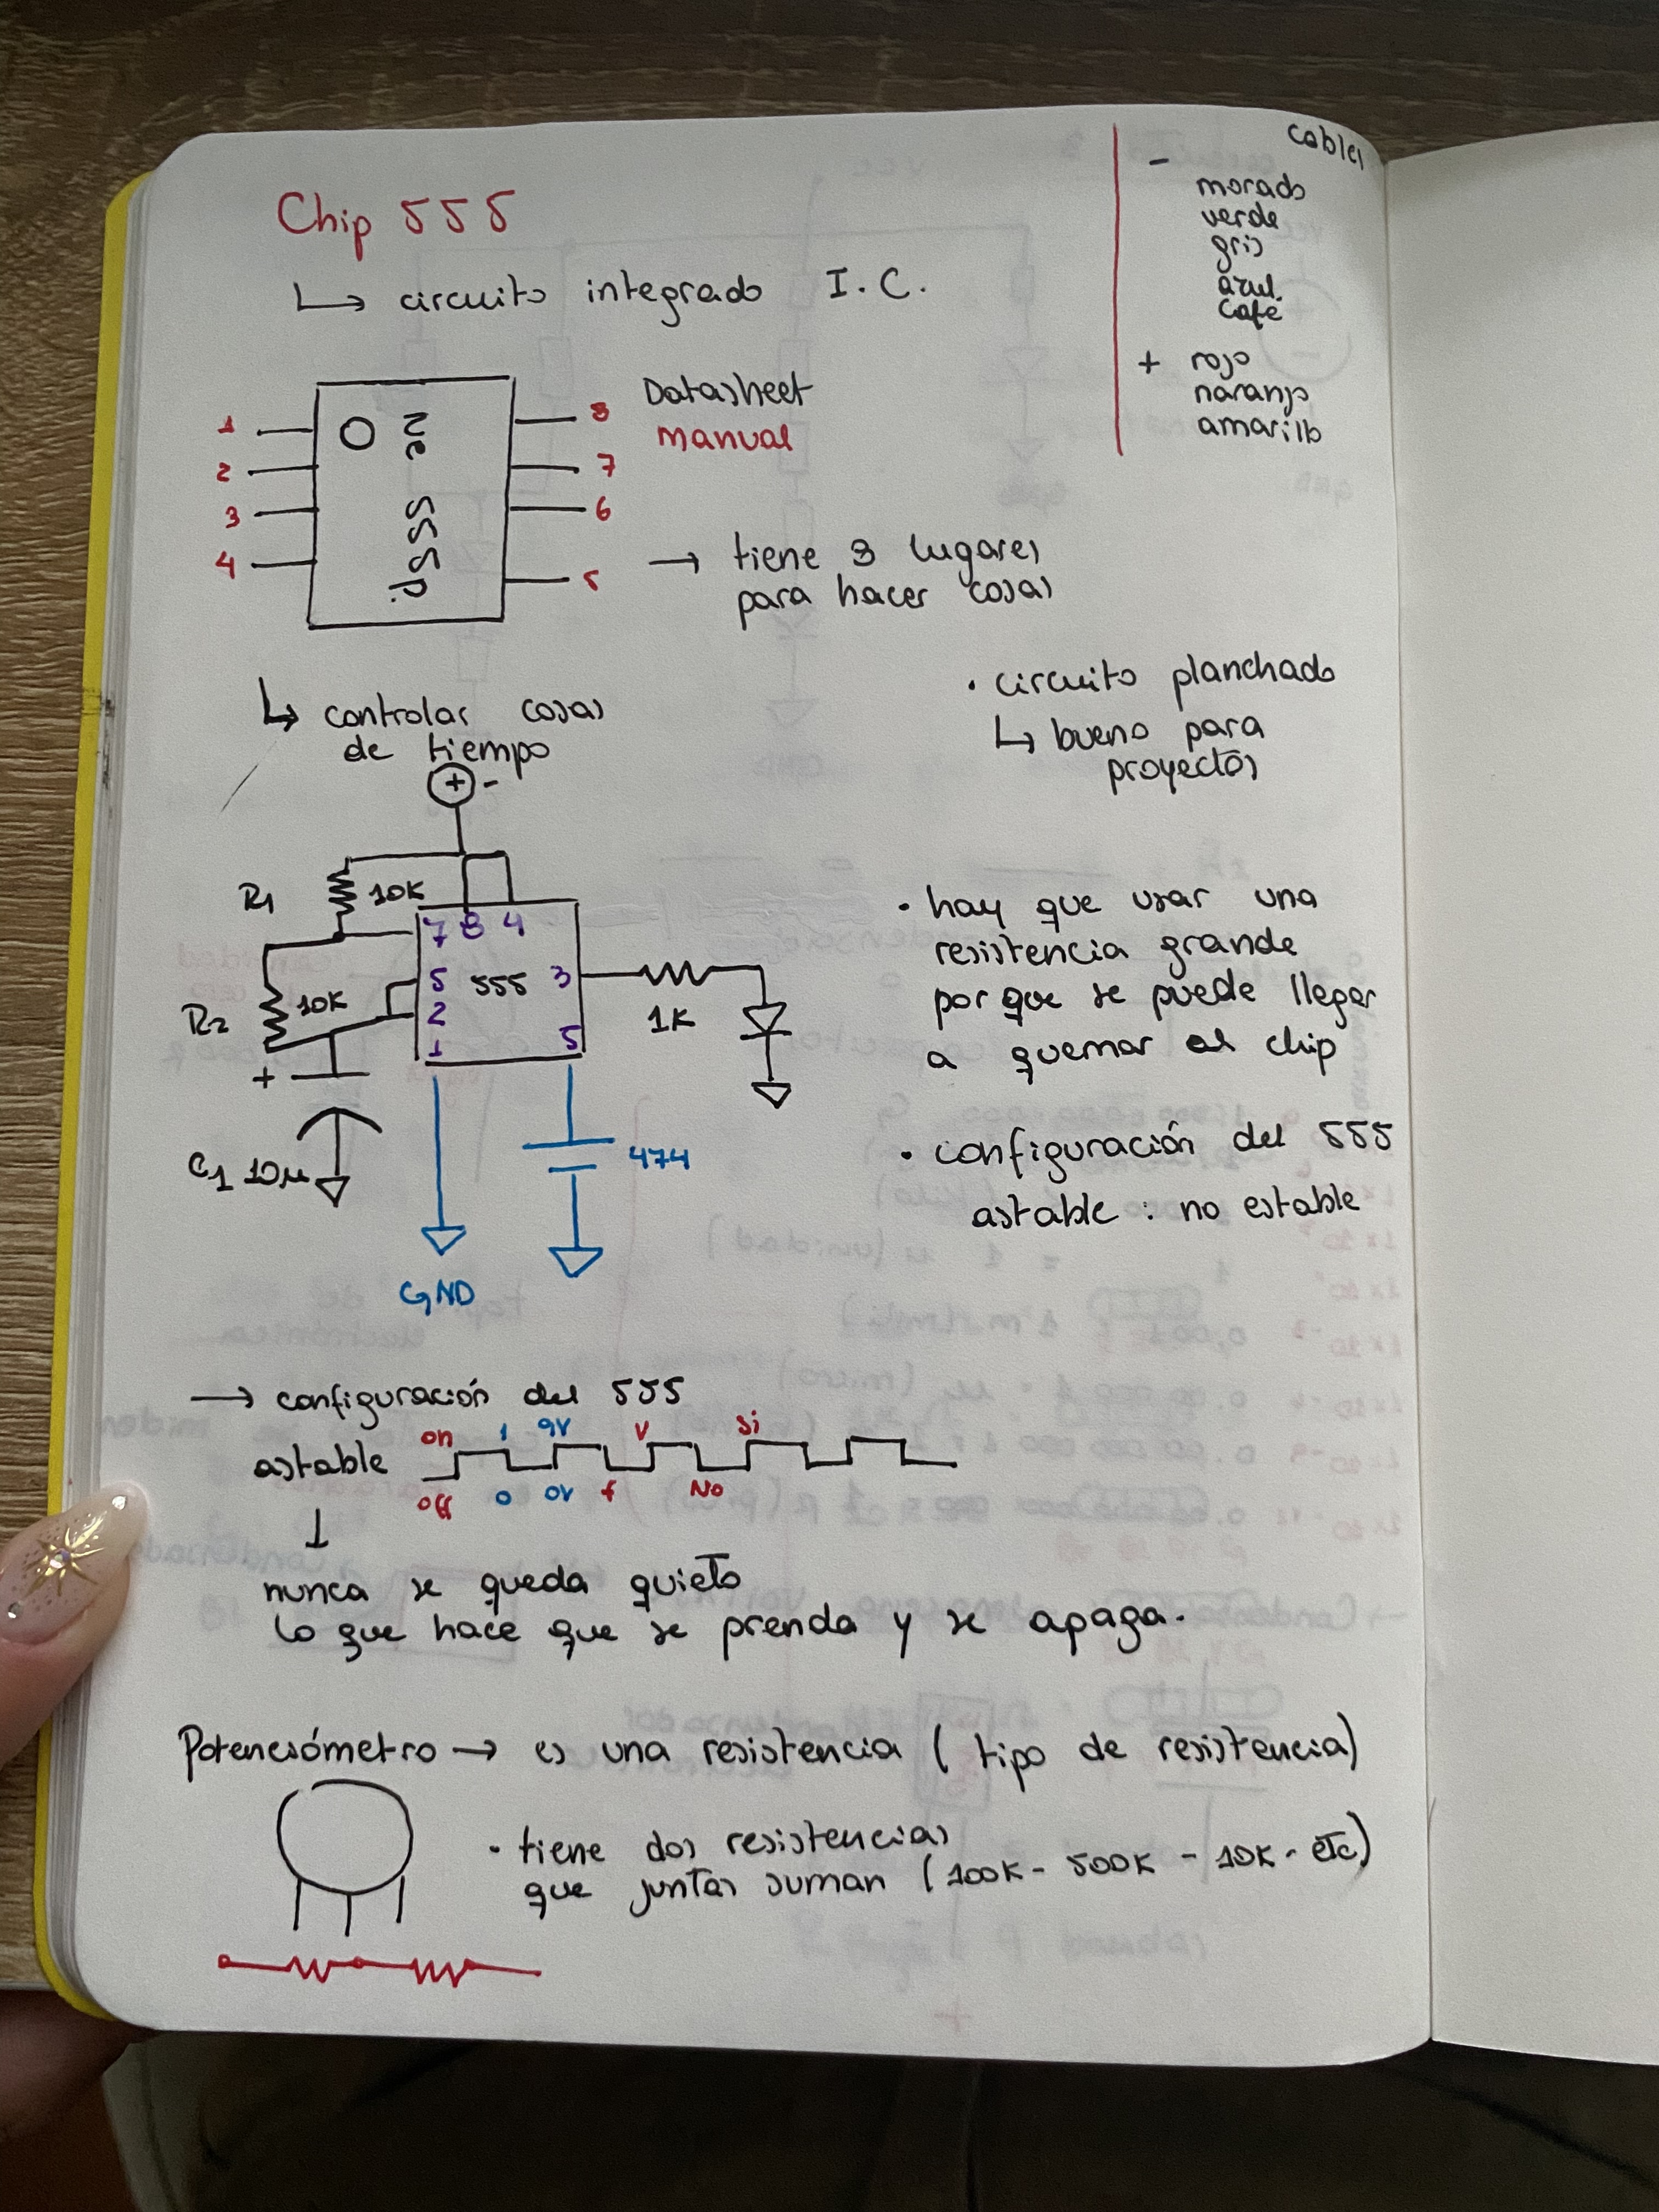 Chip 555
↳ circuito integrado I.C.
cables
-
morado
verde
gris
azul
café
+ rojo
naranjo
amarillo
1
2
3
4
8
7
6
5
Ne 555 P.
Datasheet
manual
→ tiene 8 lugares
para hacer cosas
↳ controlar cosas
de tiempo
• circuito planchado
↳ bueno para
proyectos
+ -
R1 10K
R2 10K
7 8 4
5 555 3
2
1 5
1K
+
C1 10µ
474
GND
• hay que usar una
resistencia grande
por que se puede llegar
a quemar el chip
• configuración del 555
astable : no estable
→ configuración del 555
astable
on 1 9V V Si
off 0 0V f No
nunca se queda quieto
lo que hace que se prenda y se apaga.
Potenciómetro → es una resistencia ( tipo de resistencia)
• tiene dos resistencias
que juntas suman (100K - 500K - 10K - etc)